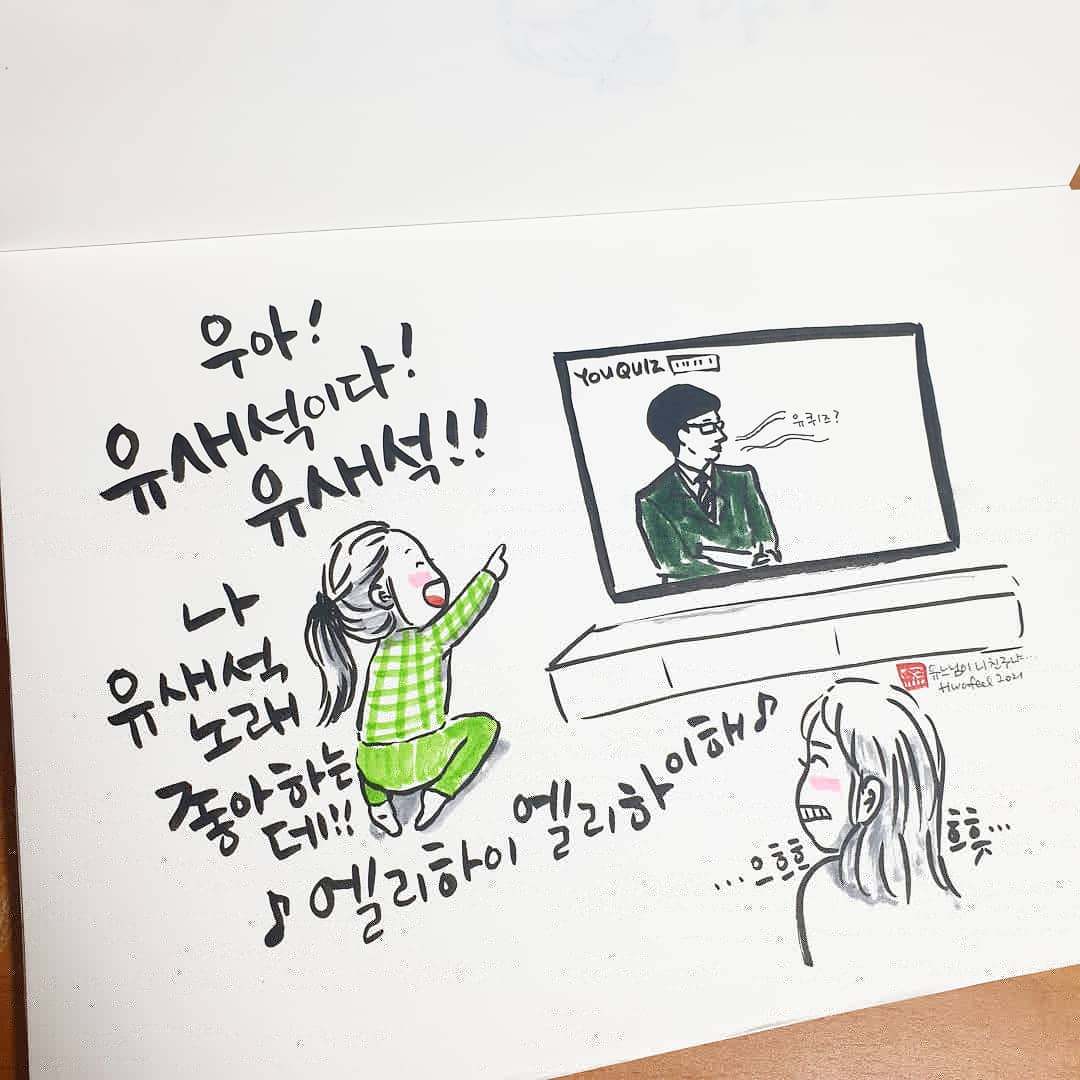 우아!
유새석이다!
유새석!!
나
유새석
노래
좋아하는
데!!
♪ 엘리하이 엘리하이해 ♪
YOU QUIZ
유퀴즈?
듀느님이 니 친주냐...
Hwafeel 2021
...으흐흐
흐흣...